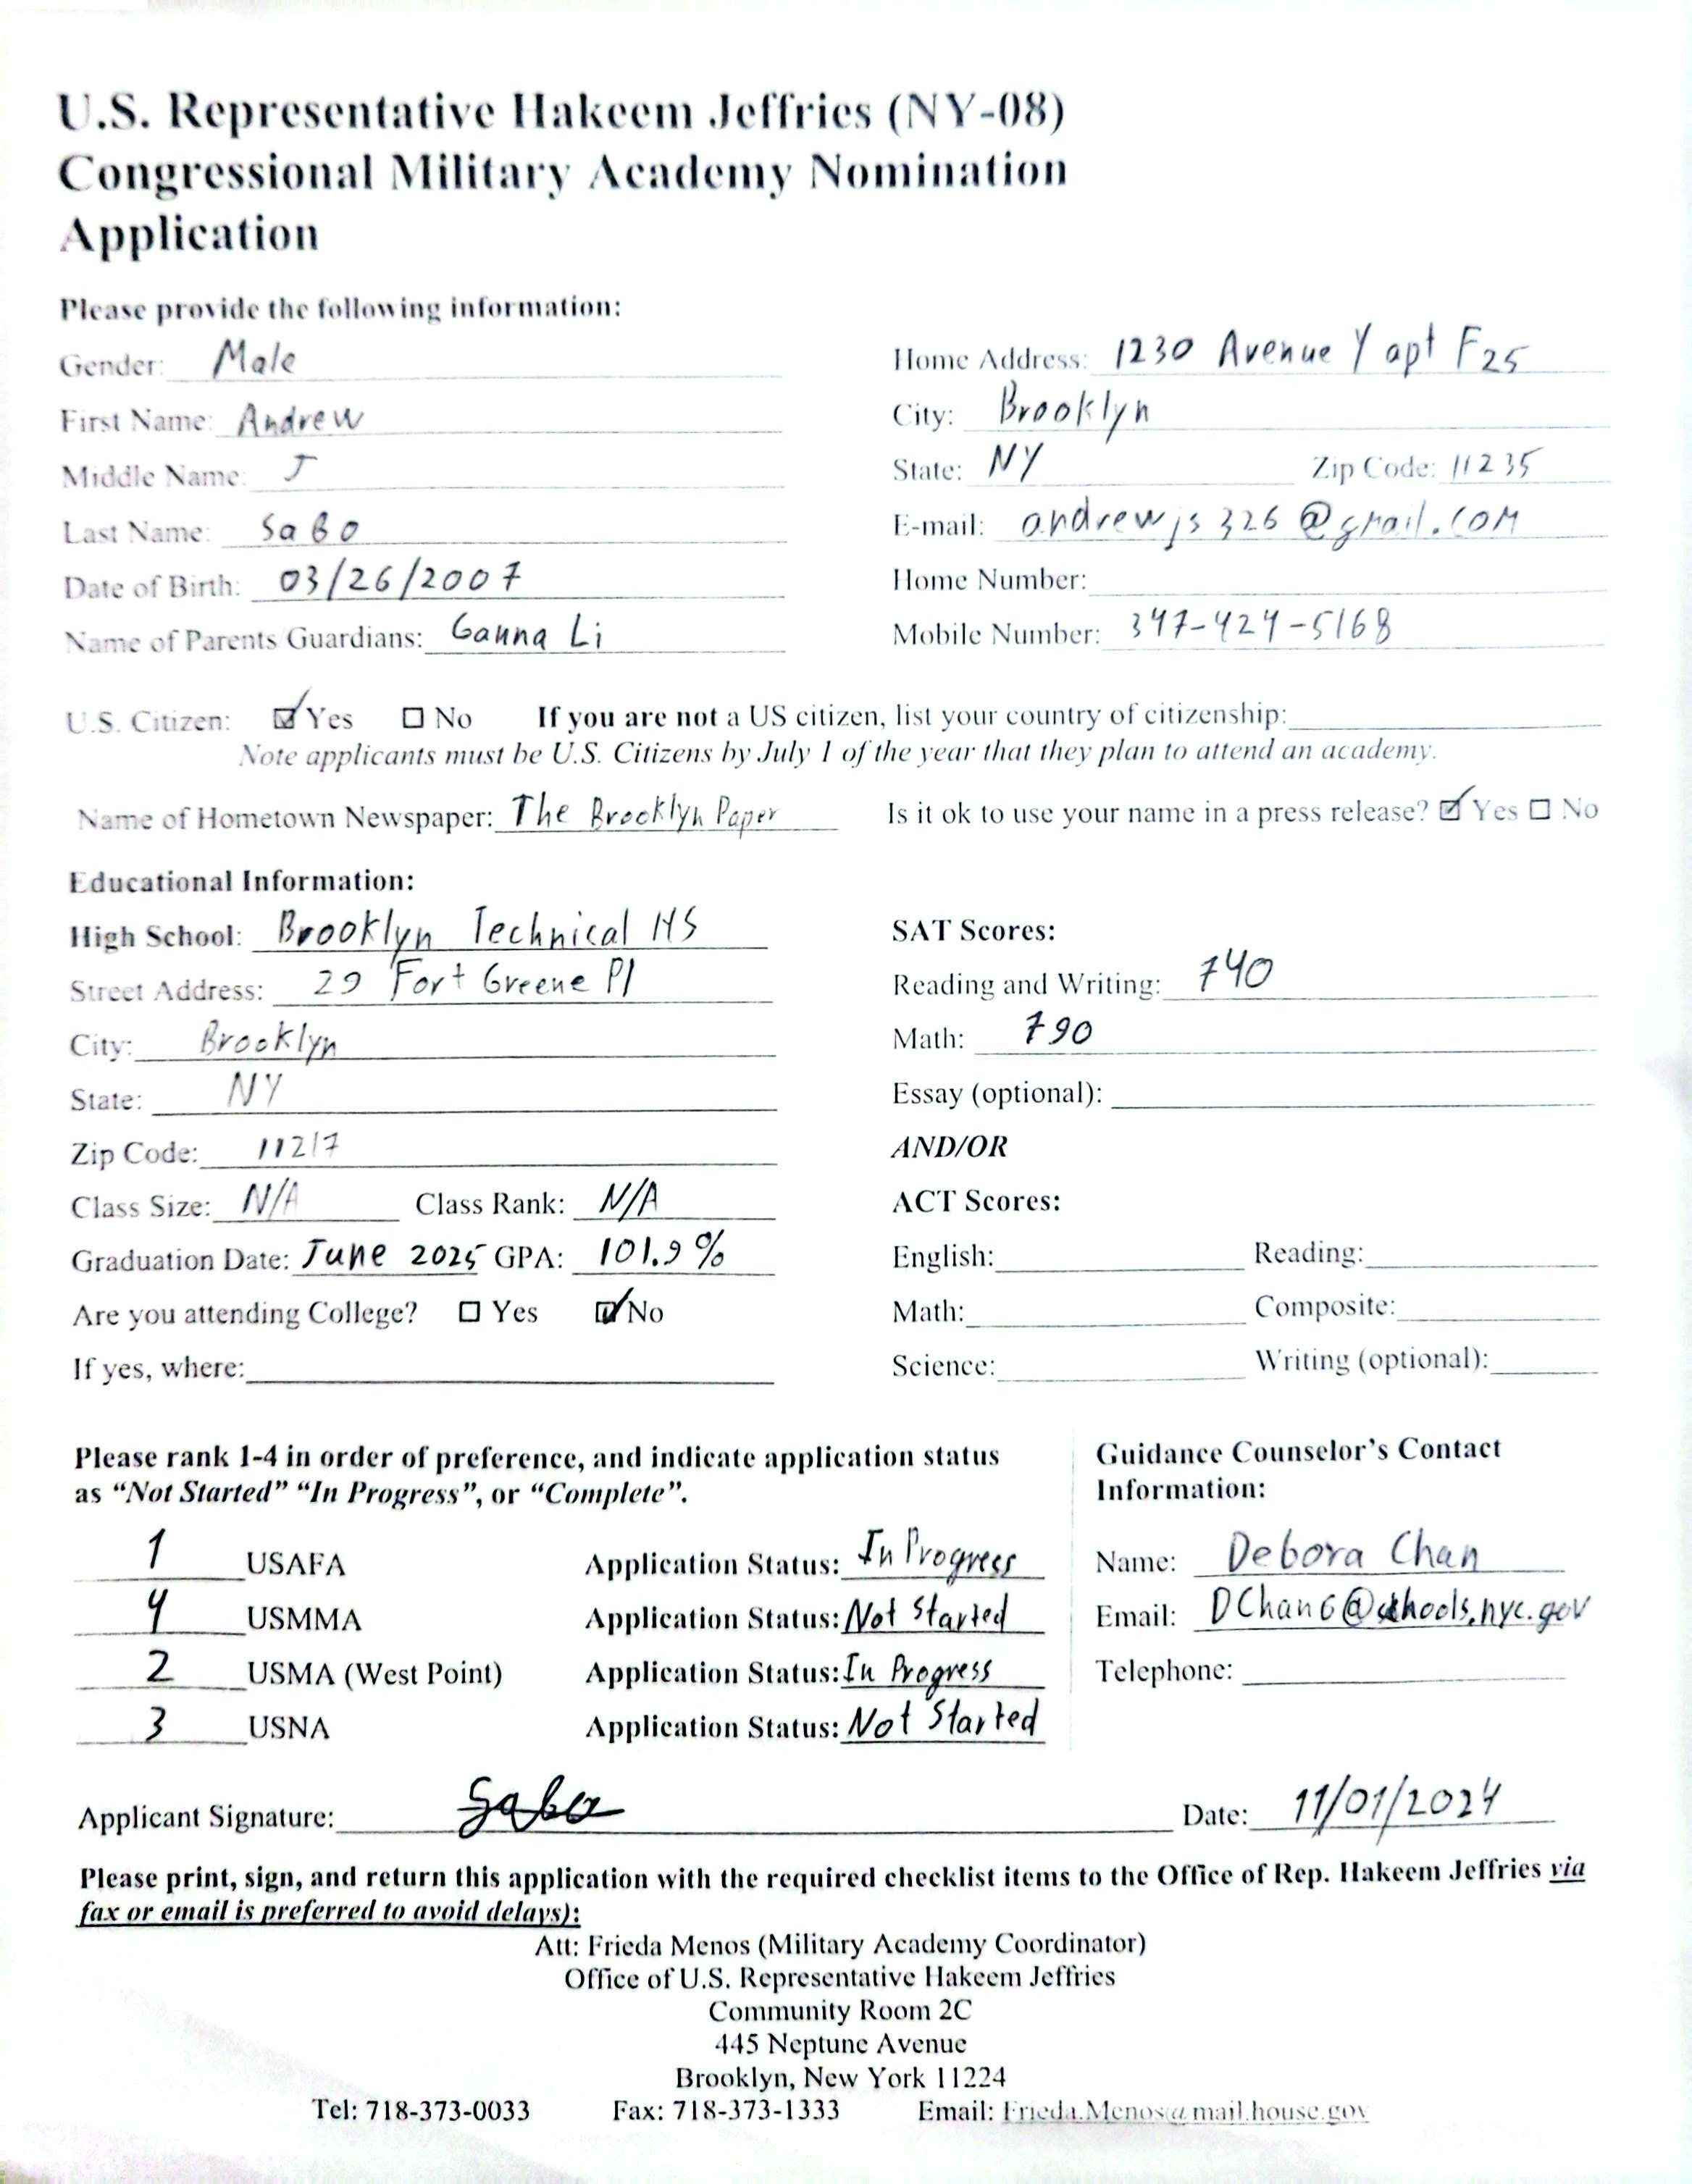 U.S. Representative Hakeem Jeffries (NY-08)
Congressional Military Academy Nomination
Application
Please provide the following information:
Gender: Male
First Name: Andrew
Middle Name: J
Last Name: Sabo
Date of Birth: 03/26/2007
Name of Parents Guardians: Ganna Li
Home Address: 1230 Avenue Y apt F25
City: Brooklyn
State: NY Zip Code: 11235
E-mail: andrewjs326@gmail.com
Home Number:
Mobile Number: 347-424-5168
U.S. Citizen: Yes No If you are not a US citizen, list your country of citizenship:
Note applicants must be U.S. Citizens by July 1 of the year that they plan to attend an academy.
Name of Hometown Newspaper: The Brooklyn Paper Is it ok to use your name in a press release? Yes No
Educational Information:
High School: Brooklyn Technical HS
Street Address: 29 Fort Greene Pl
City: Brooklyn
State: NY
Zip Code: 11217
Class Size: N/A Class Rank: N/A
Graduation Date: June 2025 GPA: 101.9%
Are you attending College? Yes No
If yes, where:
SAT Scores:
Reading and Writing: 740
Math: 790
Essay (optional):
AND/OR
ACT Scores:
English: Reading:
Math: Composite:
Science: Writing (optional):
Please rank 1-4 in order of preference, and indicate application status
as “Not Started” “In Progress”, or “Complete”.
1 USAFA Application Status: In Progress
4 USMMA Application Status: Not Started
2 USMA (West Point) Application Status: In Progress
3 USNA Application Status: Not Started
Guidance Counselor’s Contact
Information:
Name: Debora Chan
Email: DChan6@schools.nyc.gov
Telephone:
Applicant Signature: Sabo Date: 11/01/2024
Please print, sign, and return this application with the required checklist items to the Office of Rep. Hakeem Jeffries via
fax or email is preferred to avoid delays):
Att: Frieda Menos (Military Academy Coordinator)
Office of U.S. Representative Hakeem Jeffries
Community Room 2C
445 Neptune Avenue
Brooklyn, New York 11224
Tel: 718-373-0033 Fax: 718-373-1333 Email: Frieda.Menos@mail.house.gov